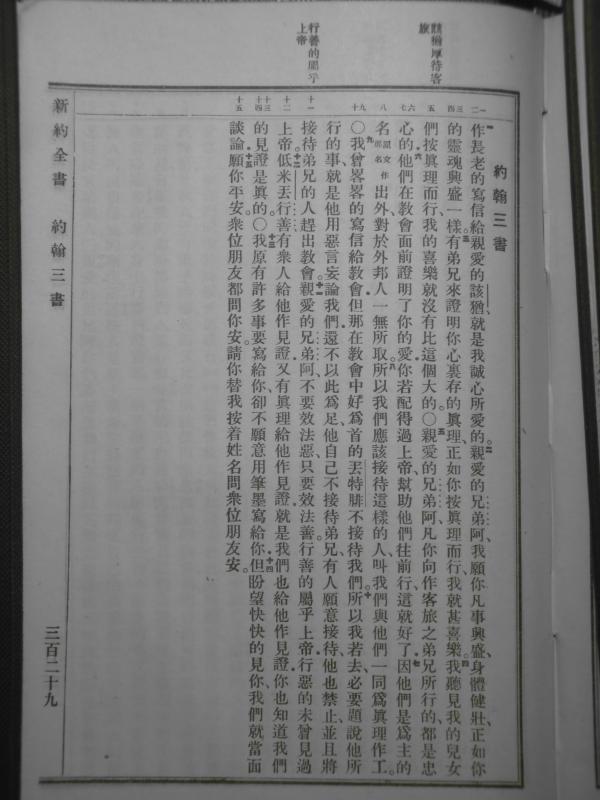 該猶厚待客
旅
行善的屬乎
上帝
約翰三書
一二
三四
五
六七
八
九十
十一
十二
十三十四
十五
作長老的寫信給親愛的該猶就是我誠心所愛的親愛的兄弟阿我願你凡事興盛身體健壯正如你
的靈魂興盛一樣有弟兄來證明你心裏存的眞理正如你按眞理而行我就甚喜樂我聽見我的兒女
們按眞理而行我的喜樂就沒有比這個大的○親愛的兄弟阿凡你向作客旅之弟兄所行的都是忠
心的他們在教會面前證明了你的愛你若配得過上帝幫助他們往前行這就好了因他們是爲主的
名原文作那名出外對於外邦人一無所取所以我們應該接待這樣的人叫我們與他們一同爲眞理作工
○我曾畧畧的寫信給教會但那在教會中好爲首的丟特腓不接待我們所以我若去必要題說他所
行的事就是他用惡言妄論我們還不以此爲足他自己不接待弟兄有人願意接待他也禁止並且將
接待弟兄的人趕出教會親愛的兄弟阿不要效法惡只要效法善行善的屬乎上帝行惡的未曾見過
上帝低米丟行善有衆人給他作見證又有眞理給他作見證就是我們也給他作見證你也知道我們
的見證是眞的○我原有許多事要寫給你卻不願意用筆墨寫給你但盼望快快的見你我們就當面
談論願你平安衆位朋友都問你安請你替我按着姓名問衆位朋友安
新約全書 約翰三書
三百二十九